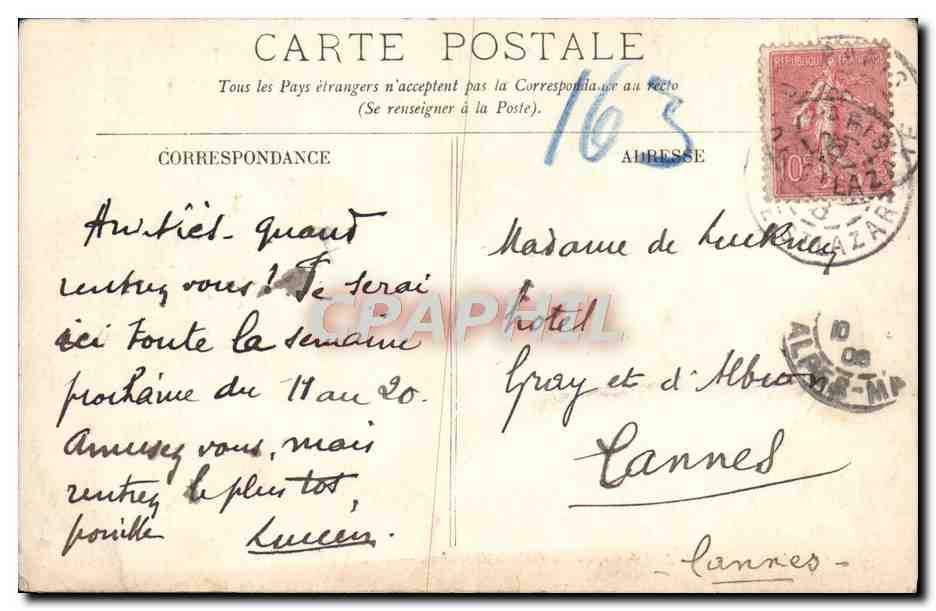 CARTE POSTALE
Tous les Pays étrangers n'acceptent pas la Correspondance au recto
(Se renseigner à la Poste).
163
CORRESPONDANCE
ADRESSE
REPUBLIQUE FRANÇAISE
10c
PARIS
ST LAZARE
Amitiés - quand
rentrez vous! Je serai
ici toute la semaine
prochaine du 11 au 20.
Amusez vous, mais
rentrez le plus tot
possible Lucien.
Madame de
hotel
Gray et d'Albion
Cannes
10
08
ALPES-MA
- Cannes -
CPAPHIL